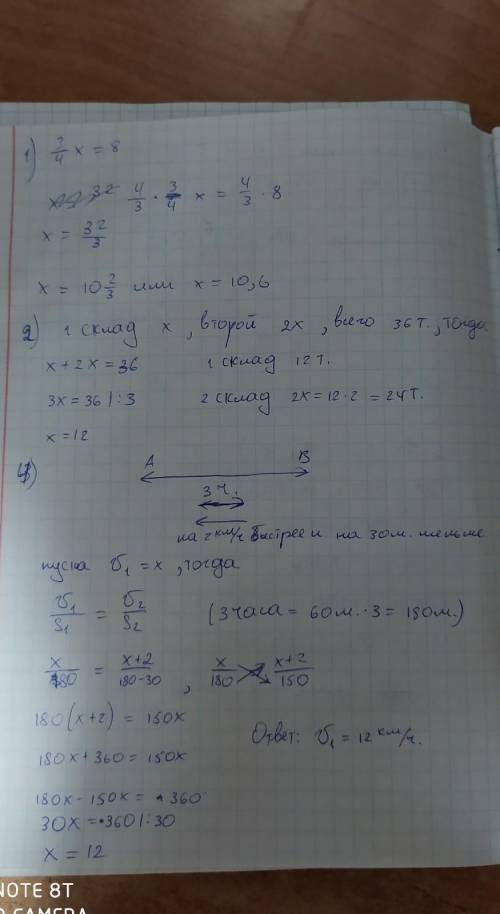 1) 3/4 x = 8
4/3 · 3/4 x = 4/3 · 8
x = 32/3
x = 10 2/3 или x = 10,6
2) 1 склад x, второй 2x, всего 36 т., тогда
x + 2x = 36 1 склад 12 т.
3x = 36 |:3 2 склад 2x = 12·2 = 24 т.
x = 12
4)
A B
3 ч.
на 2 км/ч быстрее и на 30 м. меньше
пуска v₁ = x, тогда
v₁/S₁ = v₂/S₂ (3 часа = 60 м. · 3 = 180 м.)
x/180 = x+2/180-30 , x/180 x+2/150
180(x+2) = 150x
180x + 360 = 150x Ответ: v₁ = 12 км/ч.
180x - 150x = 360
30x = 360 |:30
x = 12
NOTE 8T
CAMERA